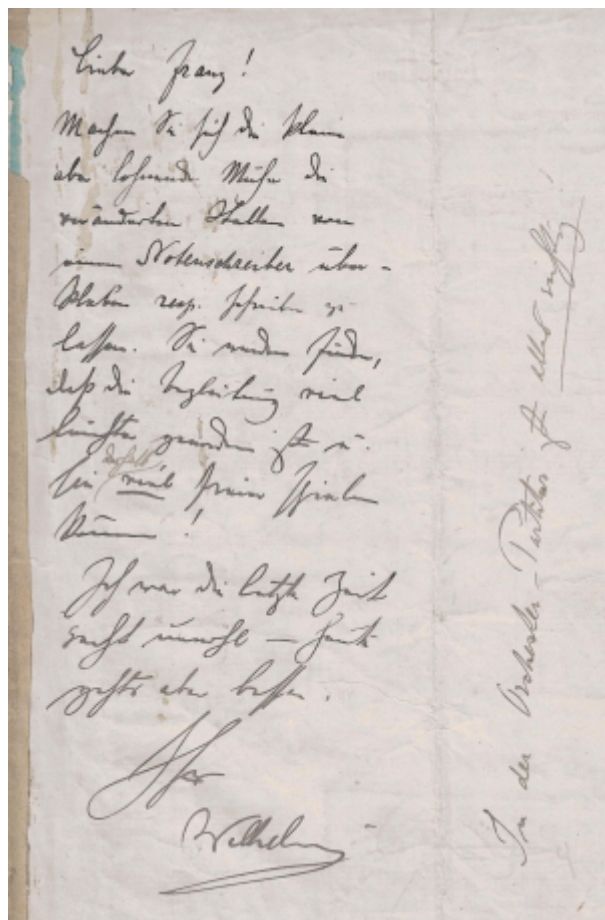 Lieber Franz!
Machen Sie sich die kleine
aber lohnende Mühe die
veränderten Stellen von
einem Notenschreiber über-
kleben resp. schreiben zu
lassen. Sie werden finden,
daß die Begleitung viel
leichter geworden ist u.
deßhalb
Sie viel freier spielen
können!
Ich war die letzte Zeit
recht unwohl — heute
gehts aber besser.
Ihr
Wilhelmj
In der Orchester-Partitur ist alles richtig.